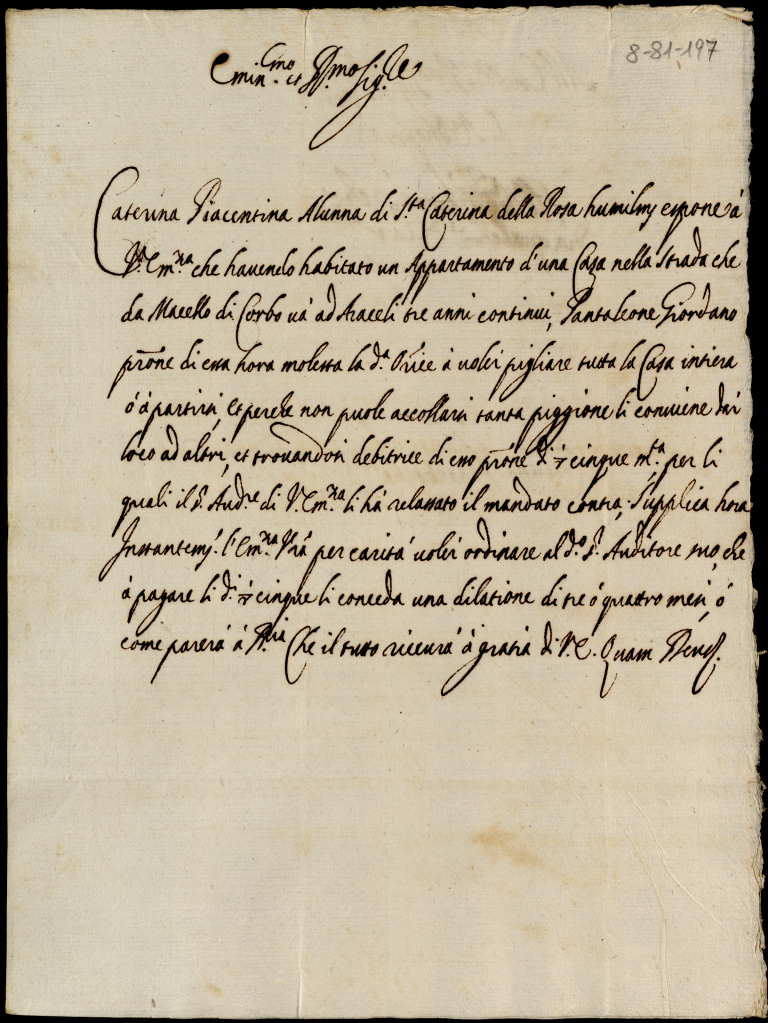 8-81-197
Emin.mo et R.mo Sig.re
Caterina Piacentina Alunna di S.ta Caterina della Rosa humilm.e espone à
V.Em.za che havendo habitato un Appartamento d'una Casa nella strada che
da Macello di Corbo và ad Araceli tre anni continui, Pantaleone Giordano
prone di essa hora molesta la d.a Or.ice à voler pigliare tutta la Casa intiera
ò à partirsi, et perche non puole accollarsi tanta piggione li conviene dar
loco ad altri, et trovandosi debitrice di esso prone di cinque m.ta per li
quali il S. Aud.re di V.Em.za li hà relassato il mandato contra, Supplica hora
Instantem.e l'Em.za V.ra per carità voler ordinare al d.o S. Auditore suo, che
à pagare li d.i cinque li conceda una dilatione di tre ò quattro mesi, ò
come parerà à Che il tutto riceverà à gratia di V.E. Quam Deus.